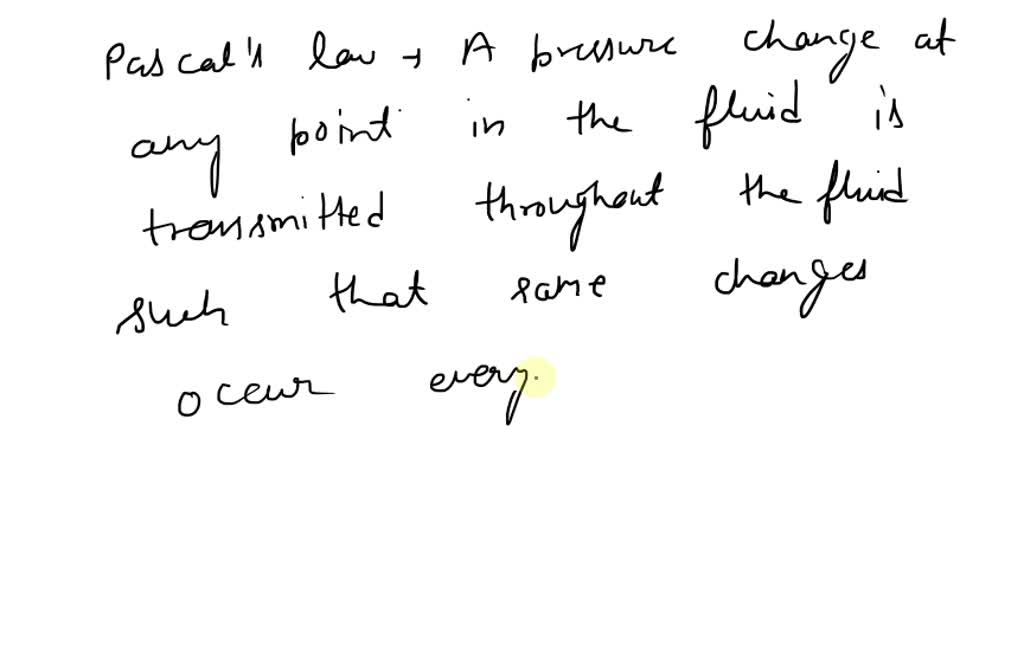 Pascal's law → A pressure change at
any point in the fluid is
transmitted throughout the fluid
such that same changes
occur every